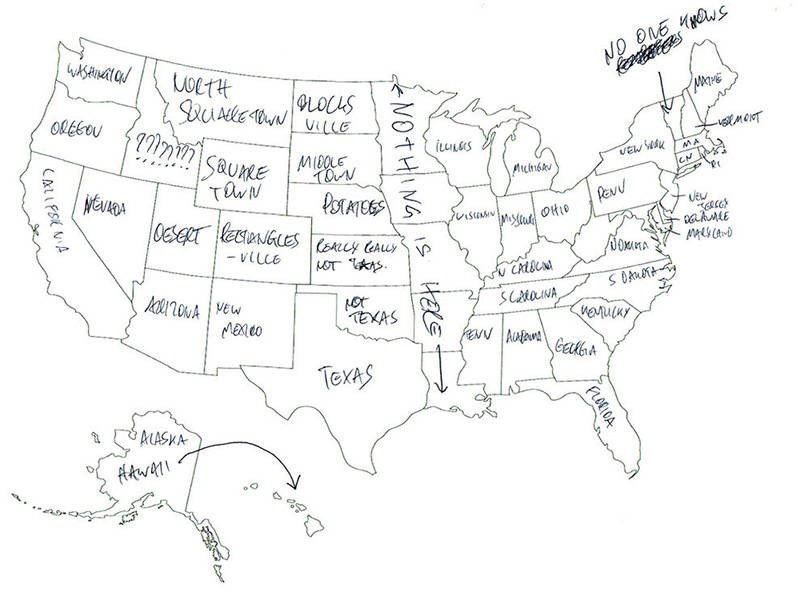 NO ONE KNOWS
WASHINGTON
NORTH
SQUARETOWN
BLOCKS
VILLE
MAINE
OREGON
???????
SQUARE
TOWN
MIDDLE
TOWN
NOTHING IS HERE
ILLINOIS
MICHIGAN
NEW YORK
VERMONT
MA
CN
RI
CALIFORNIA
NEVADA
DESERT
RECTANGLES
-VILLE
POTATOES
REALLY REALLY
NOT TEXAS.
WISCONSIN
MISSOURI
OHIO
PENN
NEW
JERSEY
DELAWARE
MARYLAND
N DAKOTA
N CAROLINA
S DAKOTA
ARIZONA
NEW
MEXICO
NOT
TEXAS
S CAROLINA
KENTUCKY
TENN
ALABAMA
GEORGIA
TEXAS
FLORIDA
ALASKA
HAWAII